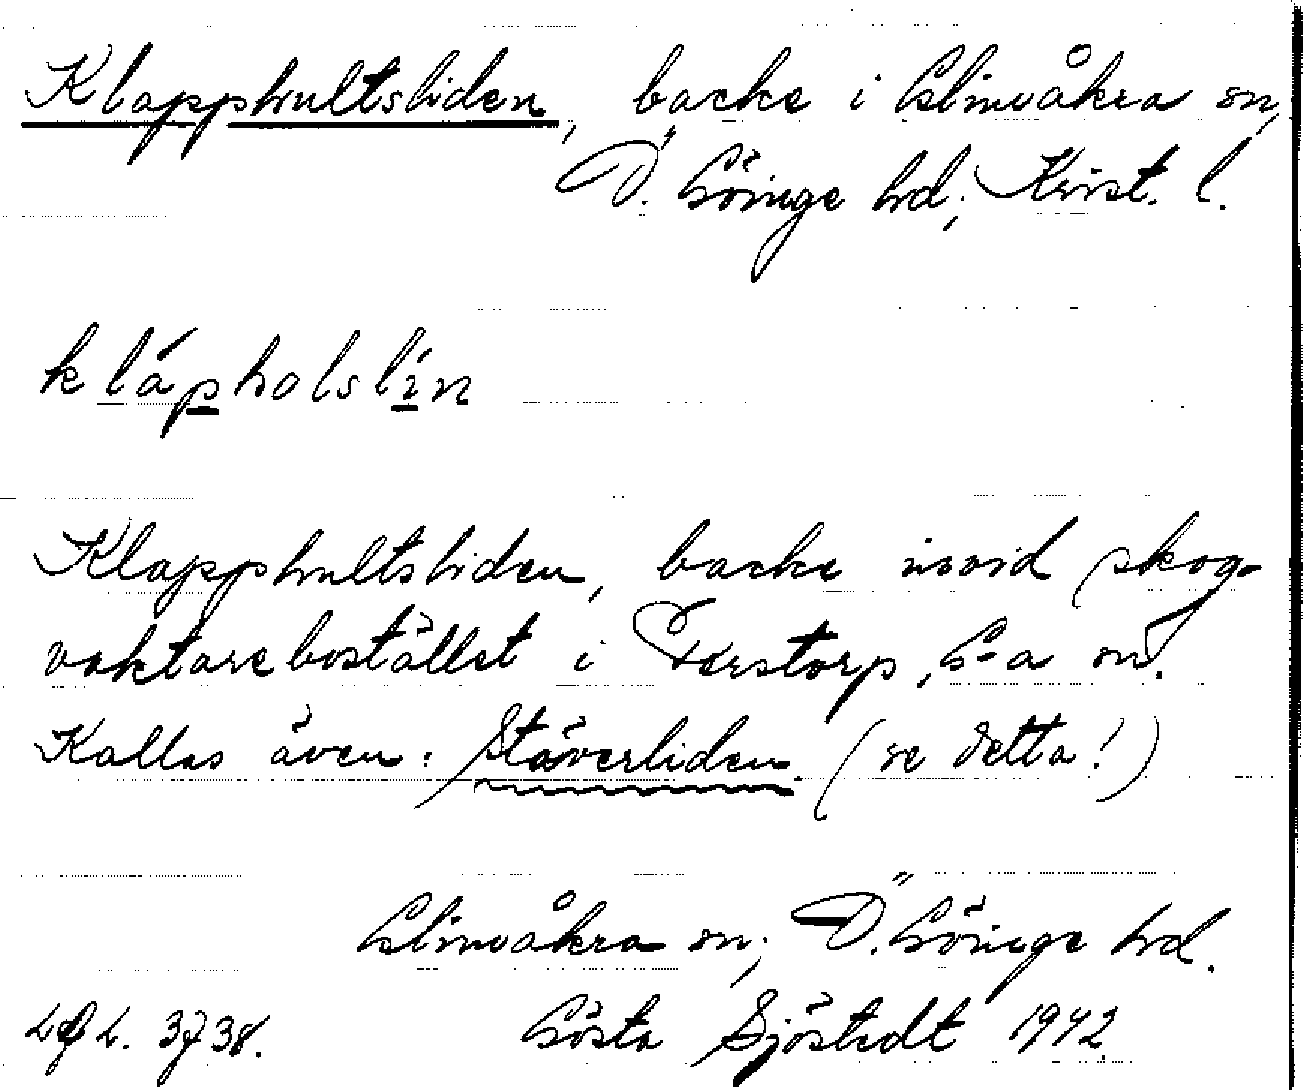 Klapphultsliden, backe i Glimåkra sn,
Ö. Göinge hd; Krist. l.
klápholslín
Klapphultsliden, backe invid skog-
vaktarebostället i Terstorp, G-a sn.
Kallas även: Stäverliden. (se detta!)
Glimåkra sn; Ö. Göinge hd.
Gösta Sjöstedt 1942